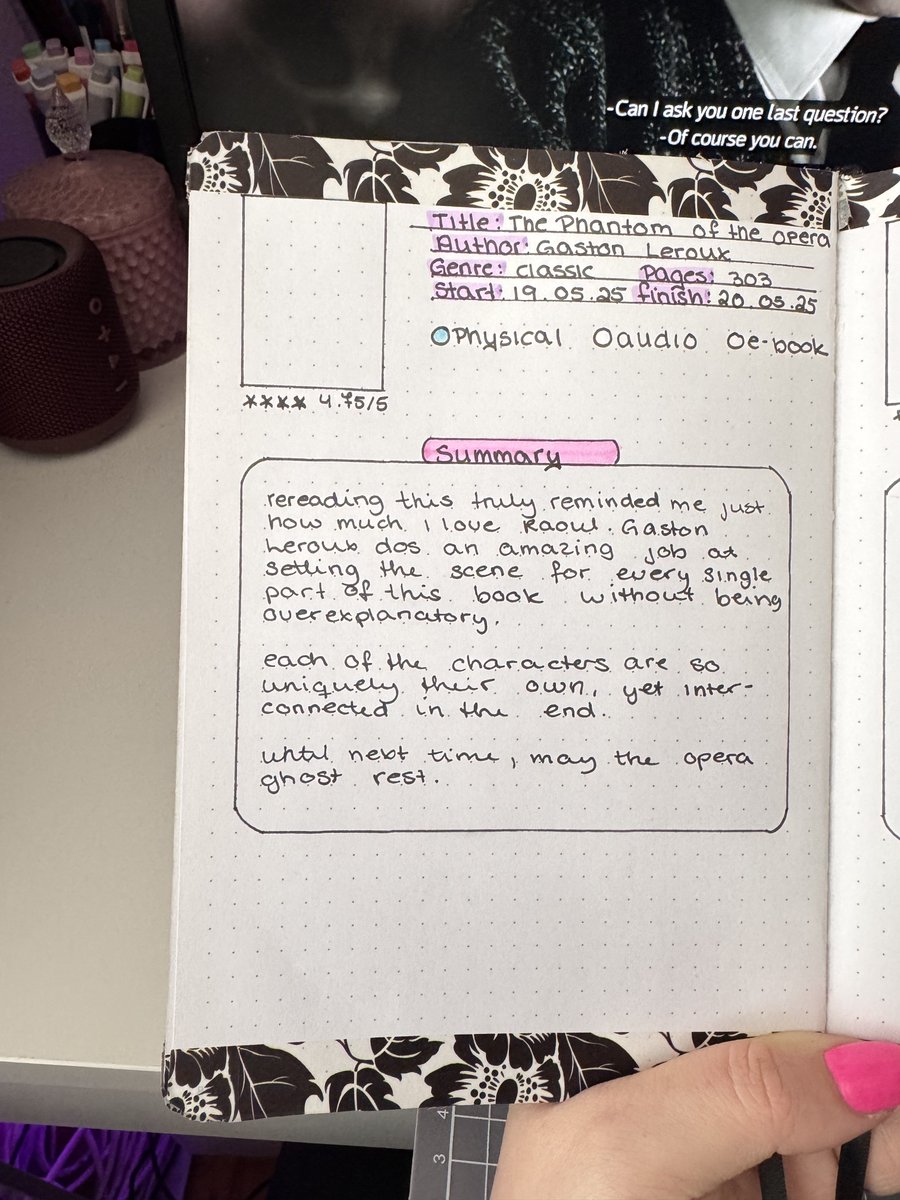 -Can I ask you one last question?
-Of course you can.
Title: The Phantom of the opera
Author: Gaston Leroux
Genre: classic Pages: 303
Start: 19.05.25 finish: 20.05.25
Physical audio e-book
4.75/5
Summary
rereading this truly reminded me just
how much I love Raoul. Gaston
Leroux dos an amazing job at
setting the scene for every single
part of this book without being
overexplanatory.
each of the characters are so
uniquely their own, yet inter-
connected in the end.
until next time, may the opera
ghost rest.
4
3